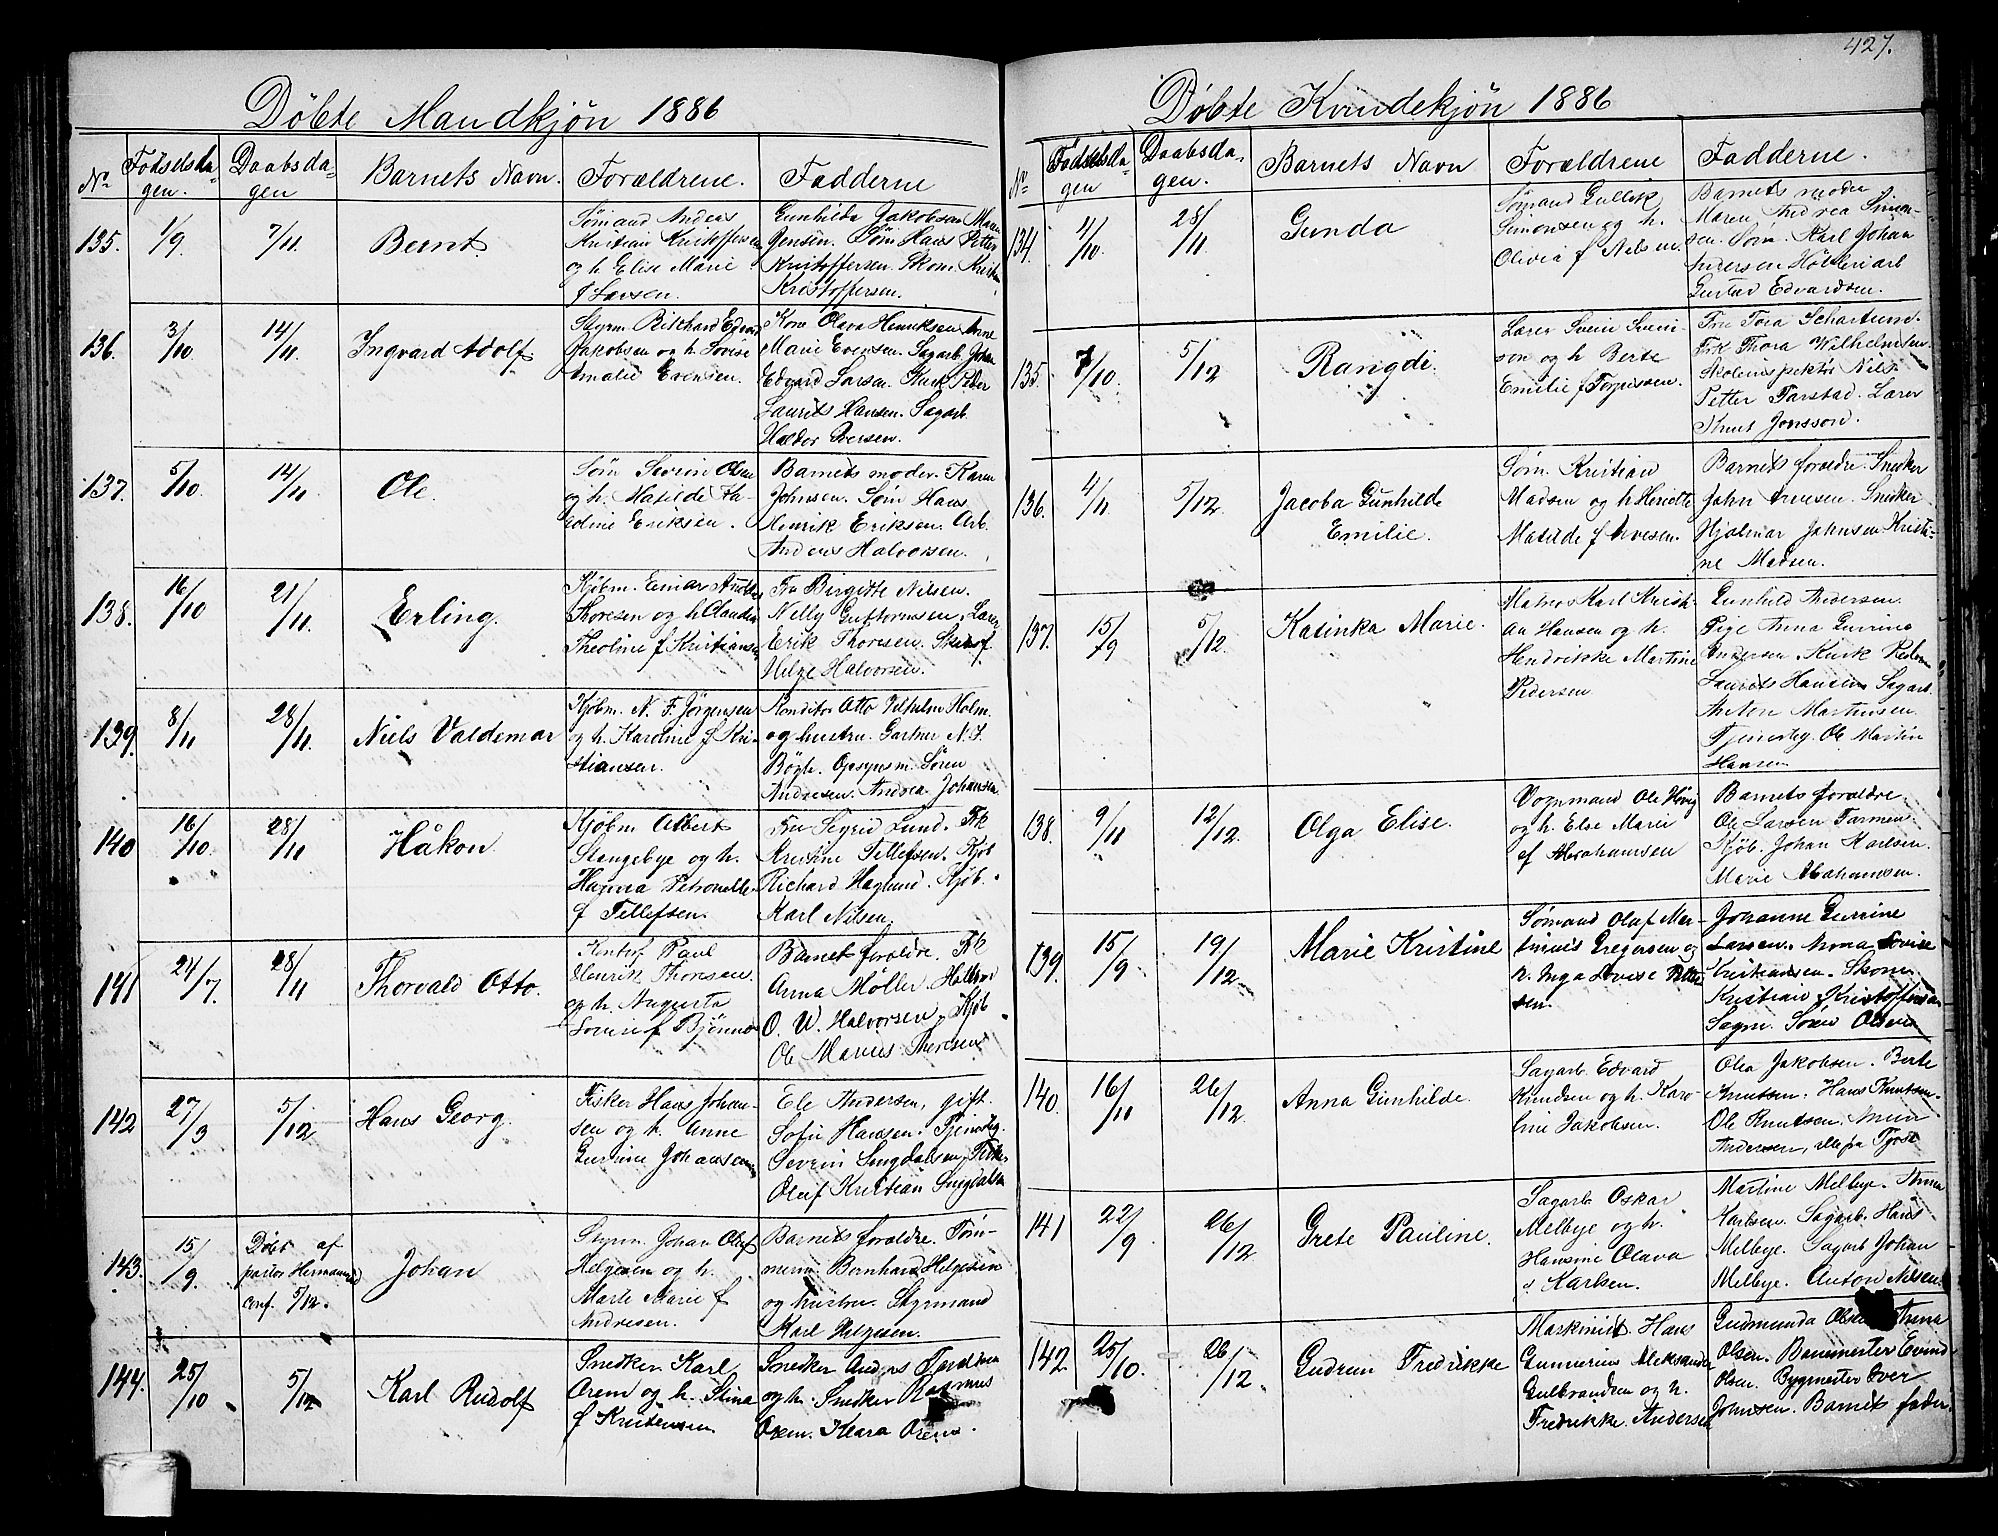 427.
Döbte Mandkjön 1886
No
Födselsda-
gen.
Daabsda-
gen
Barnets Navn.
Forældrene.
Fadderne
135.
1/9
7/11
Bernt
Sömand Andreas
Kristian Kristoffersen
og h. Elise Marie
f Larsen.
Gunhilda Jakobsen Maren
Jensen. Söm Hans Petter
Kristoffersen. Skom. Kristian
Kristoffersen.
136.
3/10
14/11
Ingvard Adolf
Styrm. Rikhard Edvard
Jakobsen og h Lovise
Amalie Evensen.
Kone Olava Henriksen Anne
Marie Evensen. Sagarb. Johan
Edvard Larsen. Kusk Peder
Laurits Hansen. Sagarb.
Haldor Iversen.
137.
5/10
14/11
Ole.
Söm Severin Olsen
og h. Matilde Ka-
roline Eriksen.
Barnets moder. Karen
Johnsen. Söm Hans
Henrik Eriksen. Arb.
Anders Halvorsen.
138.
16/10
21/11
Erling.
Kjöbm. Einar
Thoresen og h Claudia
Theoline f Kristiansen
Fru Birgitte Nilsen.
Nelly Guttormsen. Lærer
Erik Thoresen.
Helge Halvorsen.
139.
8/11
28/11
Niels Valdemar
Kjöbm. N. F. Jörgensen
og h. Karoline f Kri-
stiansen.
Konditor Otto Vilhelm Holm.
og hustru. Gartner N. J.
Bögh. Opsynsm. Sören
Andresen. Andrea Johansen
140
16/10
28/11
Håkon
Kjöbm Albert
Slangebye og h.
Hanna Petronelle
f Tellefsen.
Fru Sigrid Lund. Frk
Kristine Tellefsen. Kjöb
Richard Haglund. Kjöb.
Karl Nilsen.
141
24/7.
28/11
Thorvald Otto.
Kontof Paul
Henrik Thoresen
og h. Augusta
Lovise f Bjönnes
Barnets forældre. Frk
Anna Möller.
O. W. Halvorsen. Kjöb
Ole Marius Thoresen
142
27/3
5/12
Hans Georg
Fisker Hans Johan-
sen og h. Anne
Gurine Johansen
Ele Andersen, gift.
Sofie Hansen. Tjenestg.
Severin Smgdalsen. Fisk.
Oluf Kristian Smgdalsen
143.
15/9
Döbt af
pastor Hermansen
conf. 5/12.
Johan
Styrm. Johan Oluf
Helgesen og h.
Marte Marie f
Andresen.
Barnets forældre. Töm-
merm Bernhard Helgesen
og hustru. Styrmand
Karl Helgesen.
144.
25/10
5/12
Karl Rudolf
Snedker Karl
Orem og h. Stina
f Kristensen
Snedker Anders
og h. Snedker Rasmus
Orem. Klara Orem.
Döbte Kvindekjön 1886
No
Födselsda-
gen
Daabsda-
gen.
Barnets Navn
Forældrene
Fadderne.
134.
11/10
28/11
Gunda
Sömand Gullik
Simonsen og h.
Olivia f Nilsen
Barnets moder
Maren Andrea Simon-
sen. Söm. Karl Johan
Andersen Hölleriarb
Gustav Edvardsen.
135.
7/10.
5/12
Rangdi.
Lærer Svein Svein-
son og h Berte
Emilie f Torgussen.
Fru Tora Schartum.
Frk Thora Wilhelmsen.
Skoleinspektör Nils
Petter Tarstad. Lærer
Knut Jonsson.
136.
4/11
5/12.
Jacoba Gunhilde
Emilie.
Söm. Kristian
Madsen og h Henriette
Matilde f Arvesen.
Barnets forældre. Snedker
John Arnesen. Snedker
Hjalmar Johnsen. Kristi-
ne Madsen.
137.
15/9
5/12.
Katinka Marie.
Matros Karl Kristi-
an Hansen og h.
Hendrikke Martine
Pedersen
Gunhild Andersen.
Pige Anna Gurine
Andersen. Kusk Peder
Laurits Hansen Sagarb.
Anton Martinsen.
Tjenestg. Ole Martin
Hansen
138.
9/11
12/12.
Olga Elise.
Vognmand Ole Hövig
og h. Else Marie
af Abrahamsen
Barnets forældre.
Ole Larsen Farmen.
Kjöb. Johan Karlsen.
Marie Abrahamsen.
139.
15/9
19/12
Marie Kristine
Sömand Olaf Mar-
tinius Gregersen og
h. Inga Lovise Petter
sen.
Johanne Gurine
Larsen. Anna Lovise
Kristiansen. Skom.
Kristian Kristoffersen
Sagm. Sören Olsen
140.
16/11
26/12.
Anna Gunhilde.
Sagarb. Edvard
Knudsen og h. Karo-
line Jakobsen.
Olea Jakobsen. Berte
Knutsen. Hans Knutsen.
Ole Knutsen.
Andersen, alle fra Tjöst
141
22/9
26/12
Grete Pauline.
Sagarb Oskar
Melbye og h.
Hansine Olava
f Karlsen.
Martine Melbye. Anna
Karlsen. Sagarb. Hans
Melbye. Sagarb Johan
Melbye. Anton Nilsen.
142
25/10.
26/12.
Gudrun Fredrikke
Maskinist. Hans
Gunnerius Aleksander
Gulbrandsen og h.
Fredrikke Andersen
Gudmunda Olsen Anna
Olsen. Banemester Evind
Olsen. Bygmester Iver
Johnsen. Barnets fader.